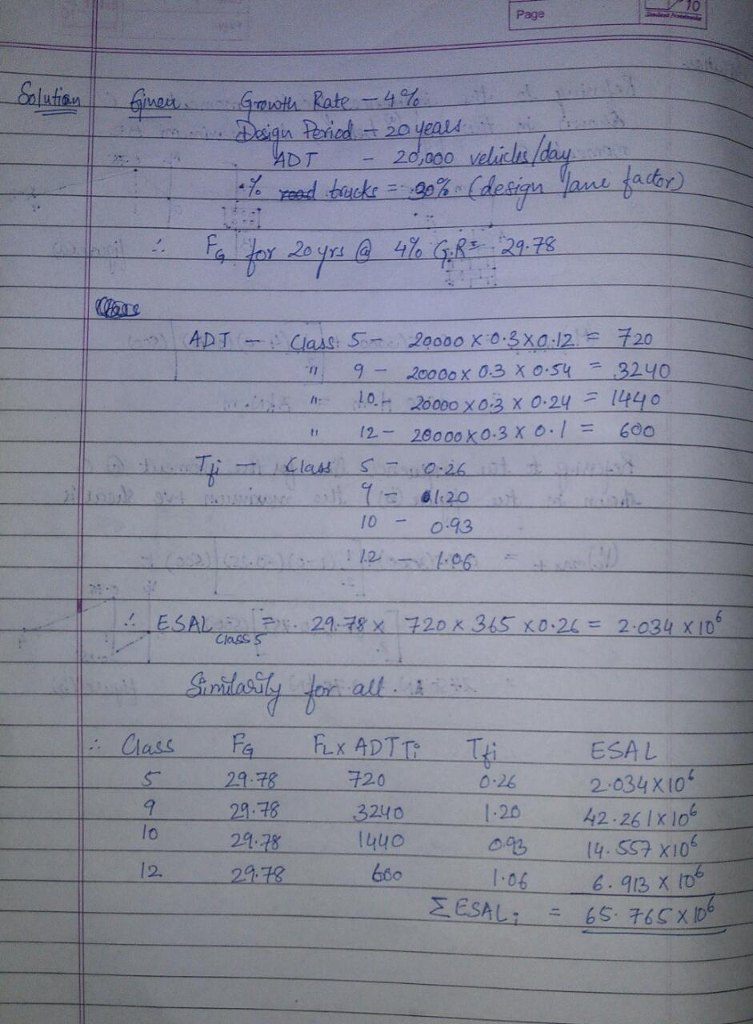 Page
10
Solution Given Growth Rate - 4%
Design Period - 20 years
ADT - 20,000 vehicles/day
% trucks = 30% (design lane factor)
∴ FG for 20 yrs @ 4% G.R = 29.78
ADT - Class 5 - 20000 x 0.3 x 0.12 = 720
" 9 - 20000 x 0.3 x 0.54 = 3240
" 10. 20000 x 0.3 x 0.24 = 1440
" 12 - 20000 x 0.3 x 0.1 = 600
Tfi - Class 5 - 0.26
9 - 1.20
10 - 0.93
12 - 1.06
∴ ESAL class 5 = 29.78 x 720 x 365 x 0.26 = 2.034 x 10⁶
Similarily for all.
∴ Class FG FL x ADTTi Tfi ESAL
5 29.78 720 0.26 2.034 x 10⁶
9 29.78 3240 1.20 42.261 x 10⁶
10 29.78 1440 0.93 14.557 x 10⁶
12 29.78 600 1.06 6.913 x 10⁶
Σ ESALi = 65.765 x 10⁶